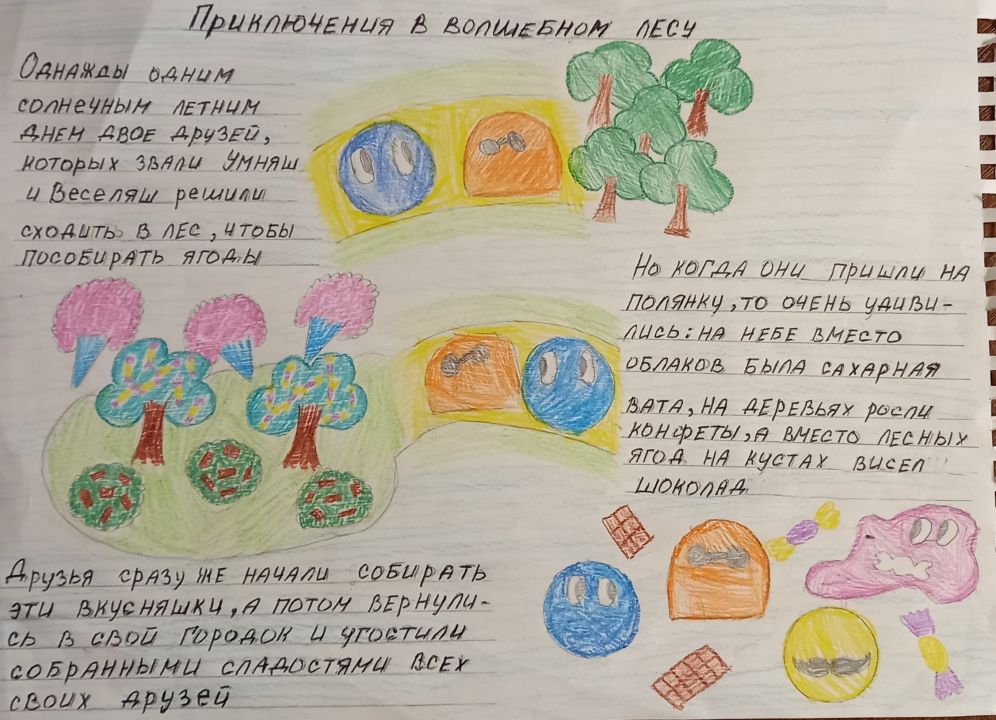 Приключения в волшебном лесу
Однажды одним
солнечным летним
днем двое друзей,
которых звали Умняш
и Веселяш решили
сходить в лес, чтобы
пособирать ягоды
Но когда они пришли на
полянку, то очень удиви-
лись: на небе вместо
облаков была сахарная
вата, на деревьях росли
конфеты, а вместо лесных
ягод на кустах висел
шоколад
Друзья сразу же начали собирать
эти вкусняшки, а потом вернули-
сь в свой городок и угостили
собранными сладостями всех
своих друзей